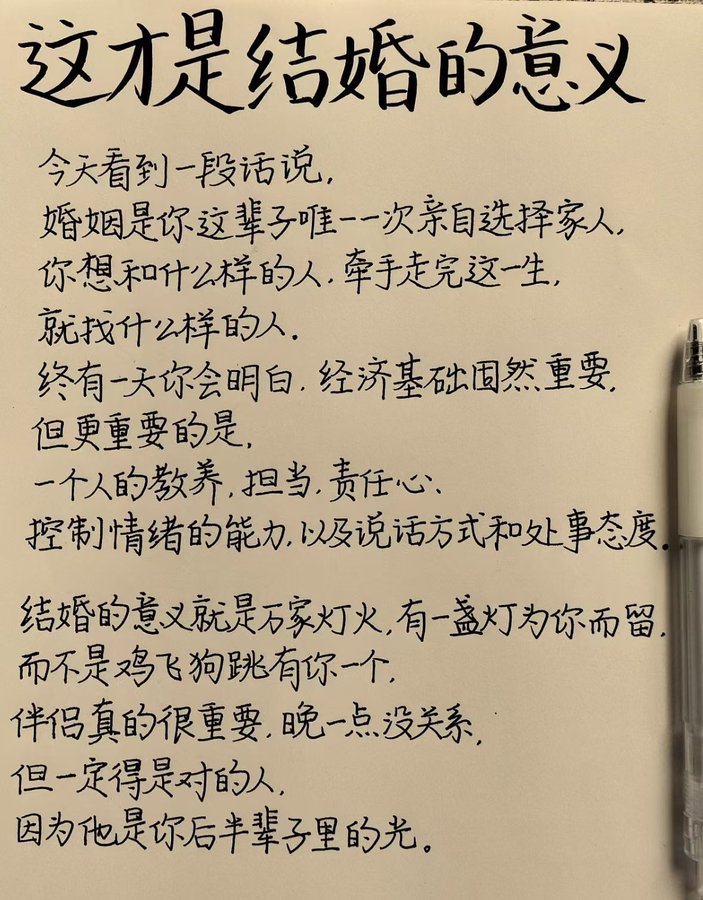 这才是结婚的意义
今天看到一段话说,
婚姻是你这辈子唯一一次亲自选择家人,
你想和什么样的人,牵手走完这一生,
就找什么样的人.
终有一天你会明白,经济基础固然重要,
但更重要的是,
一个人的教养,担当,责任心、
控制情绪的能力,以及说话方式和处事态度.
结婚的意义就是万家灯火,有一盏灯为你而留,
而不是鸡飞狗跳有你一个,
伴侣真的很重要,晚一点没关系,
但一定得是对的人,
因为他是你后半辈子里的光。